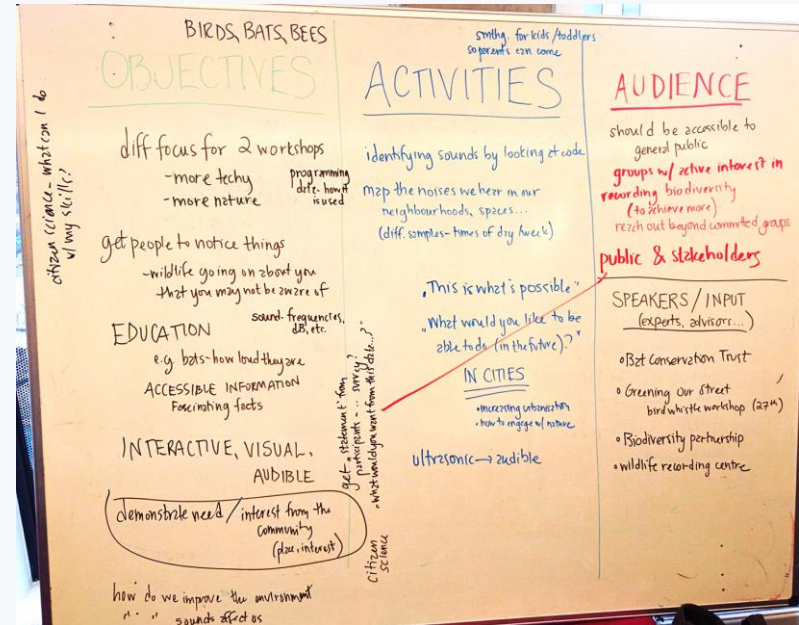 BIRDS, BATS, BEES
OBJECTIVES
citizen science - what can I do
w/ my skills?
diff focus for 2 workshops
-more techy
-more nature
programming
data - how it
is used
get people to notice things
-wildlife going on about you
that you may not be aware of
sound - frequencies,
dB, etc.
EDUCATION
e.g. bats - how loud they are
ACCESSIBLE INFORMATION
Fascinating facts
INTERACTIVE, VISUAL,
AUDIBLE
demonstrate need / interest from the
community
(place, interest)
how do we improve the environment
" " sounds affect us
get "statement" from
participants - ... survey?
"what would you want from this data...?"
citizen
science
smthg. for kids / toddlers
so parents can come
ACTIVITIES
identifying sounds by looking at code
map the noises we hear in our
neighbourhoods, spaces...
(diff. samples - times of day / week)
"This is what's possible"
"What would you like to be
able to do (in the future)?"
IN CITIES
• increasing urbanisation
• how to engage w/ nature
ultrasonic → audible
AUDIENCE
should be accessible to
general public
groups w/ active interest in
recording biodiversity
(to achieve more)
reach out beyond committed groups
public & stakeholders
SPEAKERS / INPUT
(experts, advisors...)
• Bat Conservation Trust
• Greening Our Street
birdwhistle workshop (27th)
• Biodiversity partnership
• wildlife recording centre